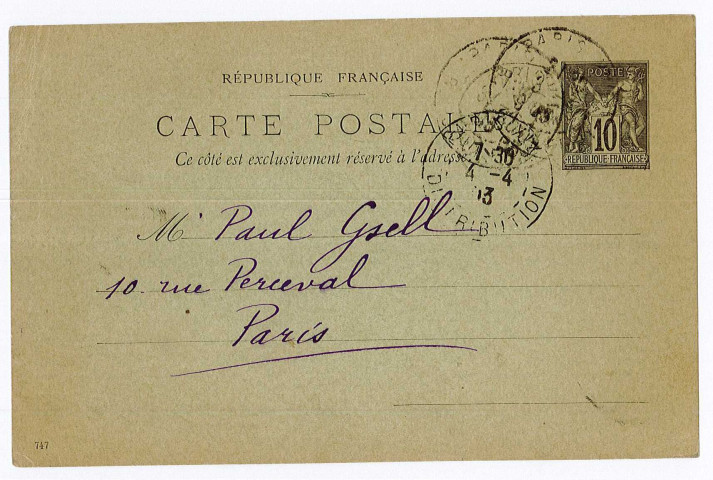 PARIS
RÉPUBLIQUE FRANÇAISE
POSTE
10
RÉPUBLIQUE FRANÇAISE
CARTE POSTA
Ce côté est exclusivement réservé à l'adresse
7 30
4 -4
03
DISTRIBUTION
Mr Paul Gsell
10 rue Perceval
Paris
747